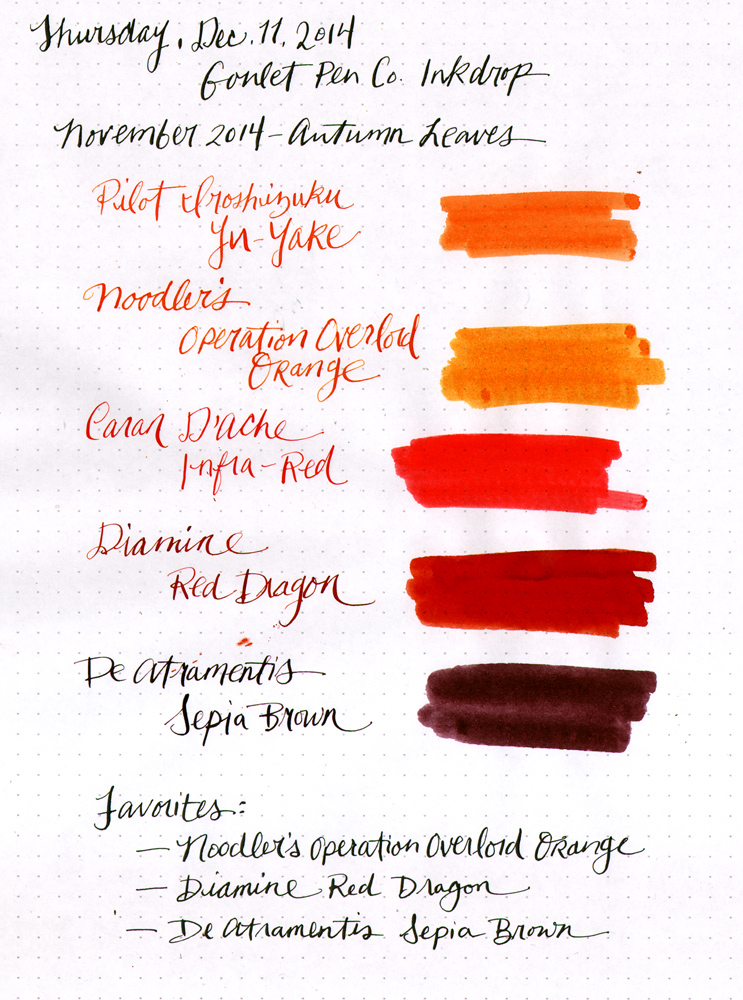 Thursday, Dec. 11, 2014
Goulet Pen Co. Inkdrop
November 2014 - Autumn Leaves
Pilot Iroshizuku
Yu-Yake
Noodler's
Operation Overlord
Orange
Caran D'Ache
Infra-Red
Diamine
Red Dragon
De Atramentis
Sepia Brown
Favorites:
— Noodler's Operation Overlord Orange
— Diamine Red Dragon
— De Atramentis Sepia Brown